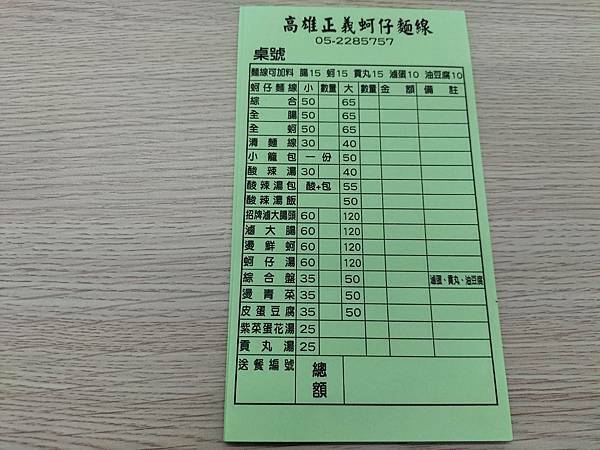 高雄正義蚵仔麵線
05-2285757
桌號
麵線可加料 腸15 蚵15 貢丸15 滷蛋10 油豆腐10
蚵仔麵線 小 數量 大 數量 金額 備註
綜合 50 65
全腸 50 65
全蚵 50 65
清麵線 30 40
小籠包 一份 50
酸辣湯 30 40
酸辣湯包 酸+包 55
酸辣湯飯 50
招牌滷大腸頭 60 120
滷大腸 60 120
燙鮮蚵 60 120
蚵仔湯 60 120
綜合盤 35 50 滷蛋、貢丸、油豆腐
燙青菜 35 50
皮蛋豆腐 35 50
紫菜蛋花湯 25
貢丸湯 25
送餐編號 總額